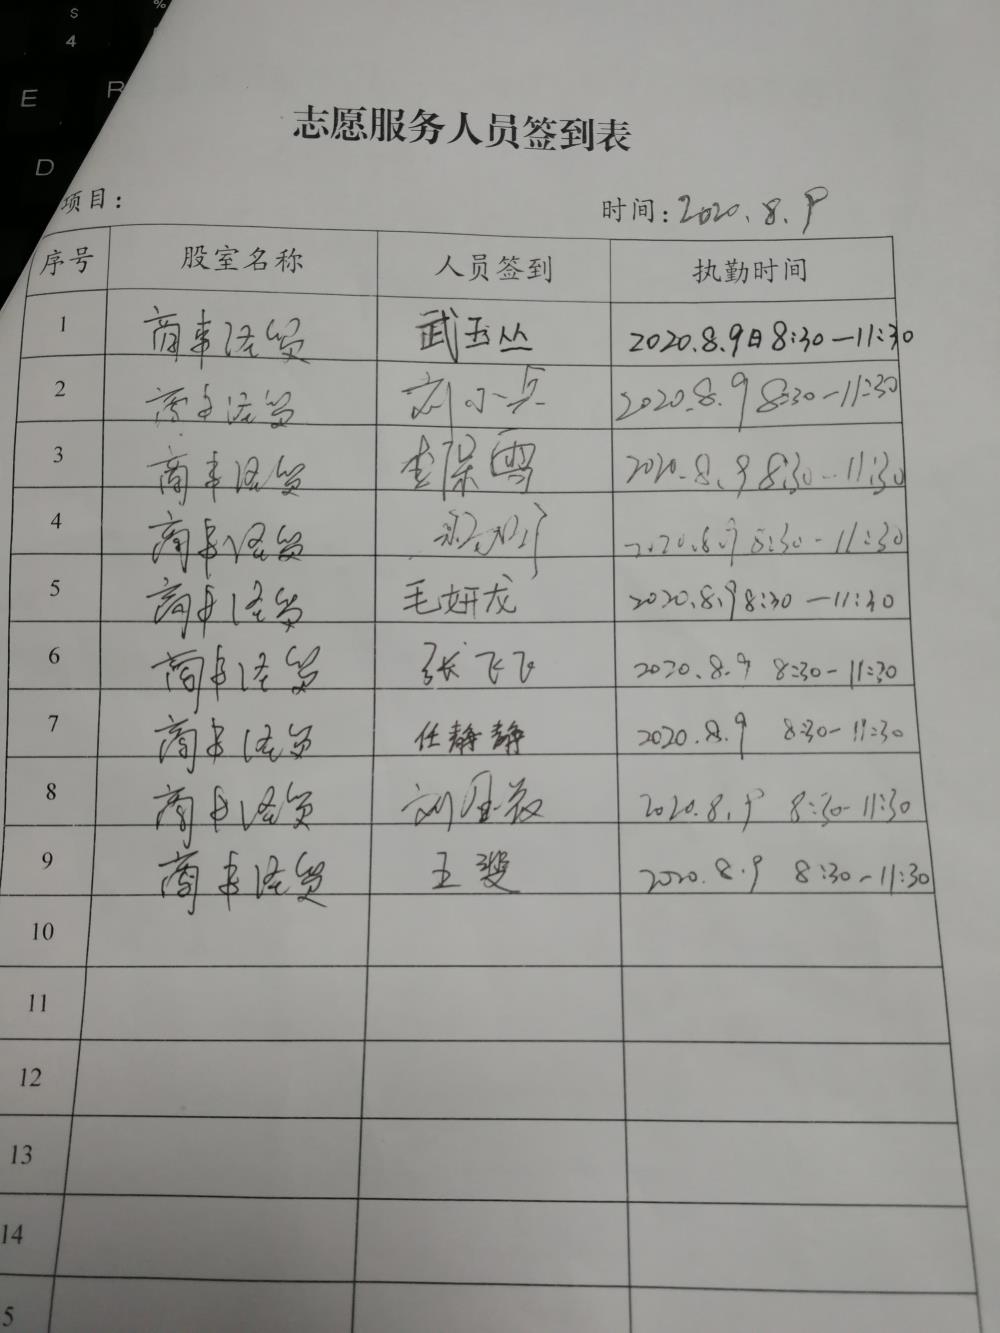 S
%
4
E
R
D
志愿服务人员签到表
项目:
时间:2020.8.9
序号 股室名称 人员签到 执勤时间
1 商事经贸 武玉丛 2020.8.9日8:30—11:30
2 商事经贸 刘小兵 2020.8.9 8:30—11:30
3 商事经贸 李保雪 2020.8.9 8:30—11:30
4 商事经贸 2020.8.9 8:30—11:30
5 商事经贸 毛妍龙 2020.8.9 8:30—11:30
6 商事经贸 张飞飞 2020.8.9 8:30—11:30
7 商事经贸 任静静 2020.8.9 8:30—11:30
8 商事经贸 刘 2020.8.9 8:30—11:30
9 商事经贸 王斐 2020.8.9 8:30—11:30
10
11
12
13
14
5